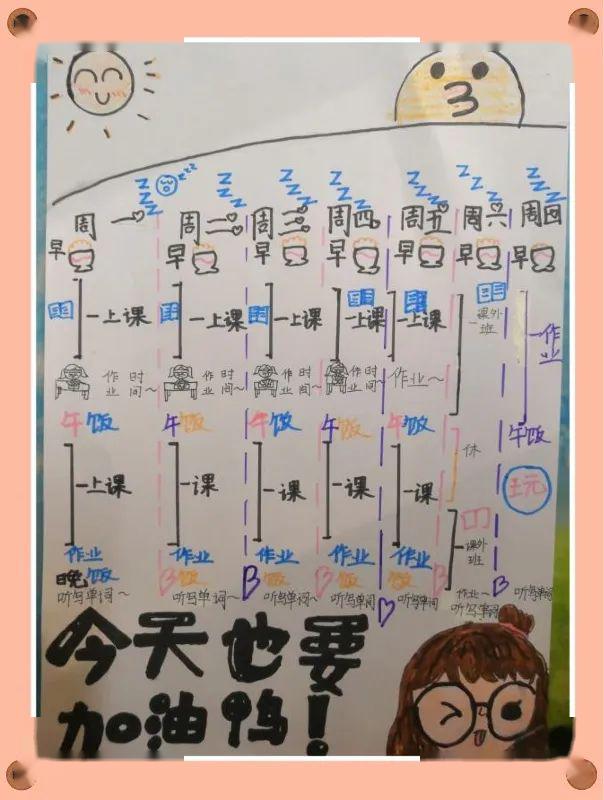 周一 周二 周三 周四 周五 周六 周日
早 早 早 早 早 早 早
上课 上课 上课 上课 上课 课外班 作业
作业时间~ 作业时间~ 作业时间~ 作业时间~ 作业~
午饭 午饭 午饭 午饭 午饭 休 午饭
上课 课 课 课 课 课外班 玩
作业 作业 作业 作业 作业 作业~
晚饭 饭 饭 饭 饭
听写单词~ 听写单词~ 听写单词~ 听写单词 听写单词 听写单词 听写单词
今天也要
加油鸭!